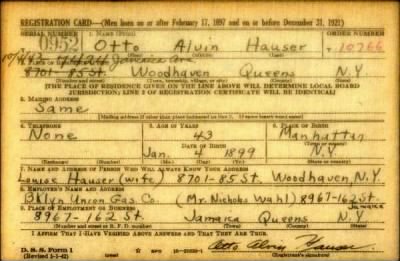 REGISTRATION CARD—(Men born on or after February 17, 1897 and on or before December 31, 1921)
SERIAL NUMBER 1. NAME (Print) ORDER NUMBER
0952 Otto Alvin Hauser 10766
Jamaica Ave
8701-85 St. Woodhaven Queens N.Y.
(Number and street) (Town, township, village, or city) (County) (State)
[THE PLACE OF RESIDENCE GIVEN ON THE LINE ABOVE WILL DETERMINE LOCAL BOARD
JURISDICTION; LINE 2 OF REGISTRATION CERTIFICATE WILL BE IDENTICAL]
3. MAILING ADDRESS
Same
[Mailing address if other than place indicated on line 2. If same insert word same]
4. TELEPHONE 5. AGE IN YEARS 6. PLACE OF BIRTH
None 43 Manhattan
DATE OF BIRTH
Jan. 4 1899 N.Y.
(Exchange) (Number) (Mo.) (Day) (Yr.) (State or country)
7. NAME AND ADDRESS OF PERSON WHO WILL ALWAYS KNOW YOUR ADDRESS
Louise Hauser (wife) 8701-85 St. Woodhaven, N.Y.
8. EMPLOYER'S NAME AND ADDRESS
Bklyn Union Gas Co. (Mr. Nicholas Wahl) 8967-162 St.
Jamaica
9. PLACE OF EMPLOYMENT OR BUSINESS
8967-162 St. Jamaica Queens N.Y.
(Number and street or R. F. D. number) (Town) (County) (State)
I AFFIRM THAT I HAVE VERIFIED ABOVE ANSWERS AND THAT THEY ARE TRUE.
D. S. S. Form 1
(Revised 4-1-42) (over) Otto Alvin Hauser